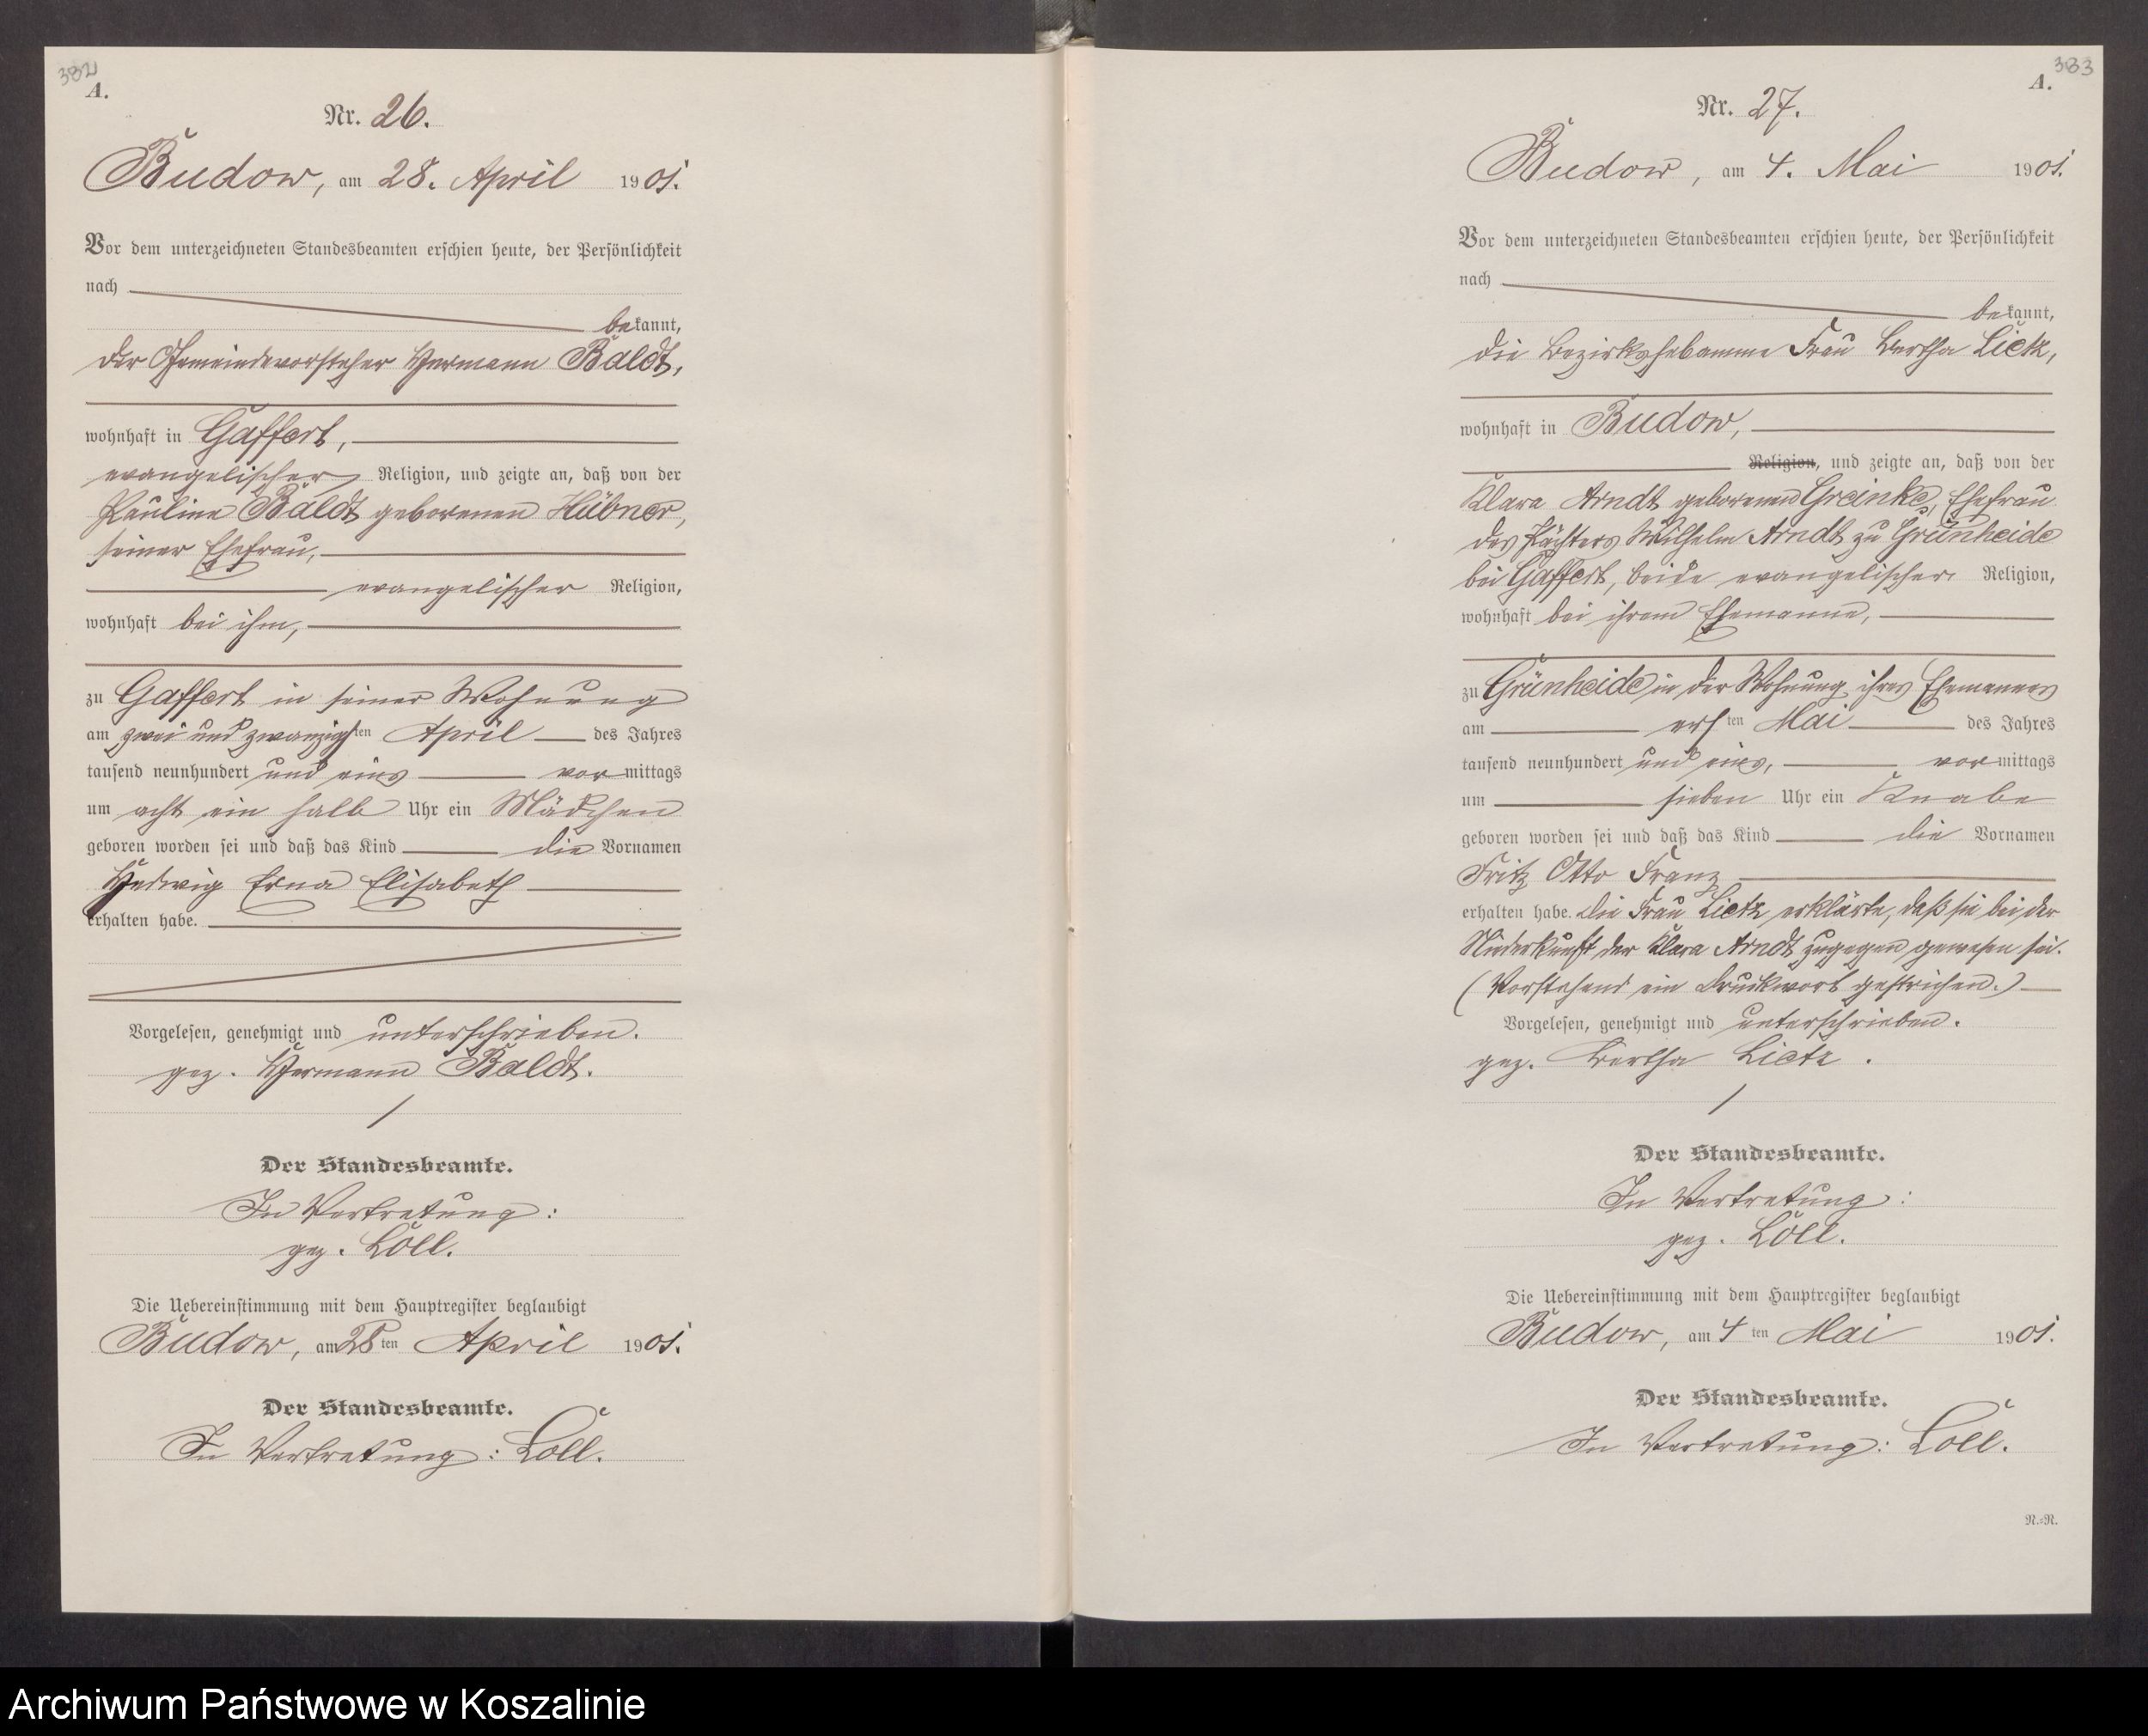 382
A.
Nr. 26.
Budow, am 28. April 1901.
Vor dem unterzeichneten Standesbeamten erschien heute, der Persönlichkeit
nach
bekannt,
der Gemeindevorsteher Hermann Baldt,
wohnhaft in Gaffert,
evangelischer Religion, und zeigte an, daß von der
Pauline Baldt geborenen Hübner,
seiner Ehefrau,
evangelischer Religion,
wohnhaft bei ihm,
zu Gaffert in seiner Wohnung
am zwei und zwanzigsten April des Jahres
tausend neunhundert und eins vormittags
um acht ein halb Uhr ein Mädchen
geboren worden sei und daß das Kind die Vornamen
Hedwig Erna Elisabeth
erhalten habe.
Vorgelesen, genehmigt und unterschrieben.
gez. Hermann Baldt.
Der Standesbeamte.
In Vertretung:
gez. Löll.
Die Uebereinstimmung mit dem Hauptregister beglaubigt
Budow, am 28ten April 1901.
Der Standesbeamte.
In Vertretung: Löll.
383
A.
Nr. 27.
Budow, am 4. Mai 1901.
Vor dem unterzeichneten Standesbeamten erschien heute, der Persönlichkeit
nach
bekannt,
die Bezirkshebamme Frau Bertha Lietz,
wohnhaft in Budow,
Religion, und zeigte an, daß von der
Klara Arndt geborenen Greinke, Ehefrau
des Pächters Wilhelm Arndt zu Grünheide
bei Gaffert, beide evangelischer Religion,
wohnhaft bei ihrem Ehemanne,
zu Grünheide in der Wohnung ihres Ehemannes
am ersten Mai des Jahres
tausend neunhundert und eins, vormittags
um sieben Uhr ein Knabe
geboren worden sei und daß das Kind die Vornamen
Fritz Otto Franz
erhalten habe. Die Frau Lietz erklärte, daß sie bei der
Niederkunft der Klara Arndt zugegen gewesen sei.
(Vorstehend ein Druckwort gestrichen.)
Vorgelesen, genehmigt und unterschrieben.
gez. Bertha Lietz.
Der Standesbeamte.
In Vertretung:
gez. Löll.
Die Uebereinstimmung mit dem Hauptregister beglaubigt
Budow, am 4ten Mai 1901.
Der Standesbeamte.
In Vertretung: Löll.
N.-N.
Archiwum Państwowe w Koszalinie